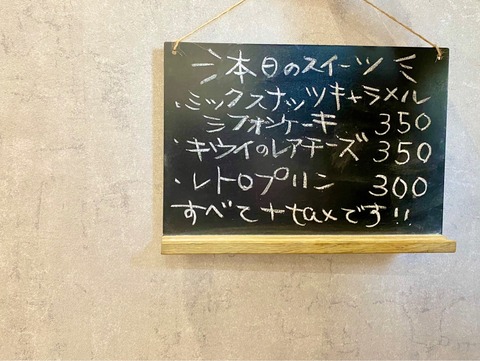 本日のスイーツ
・ミックスナッツキャラメル
シフォンケーキ 350
・キウイのレアチーズ 350
・レトロプリン 300
すべて+taxです!!